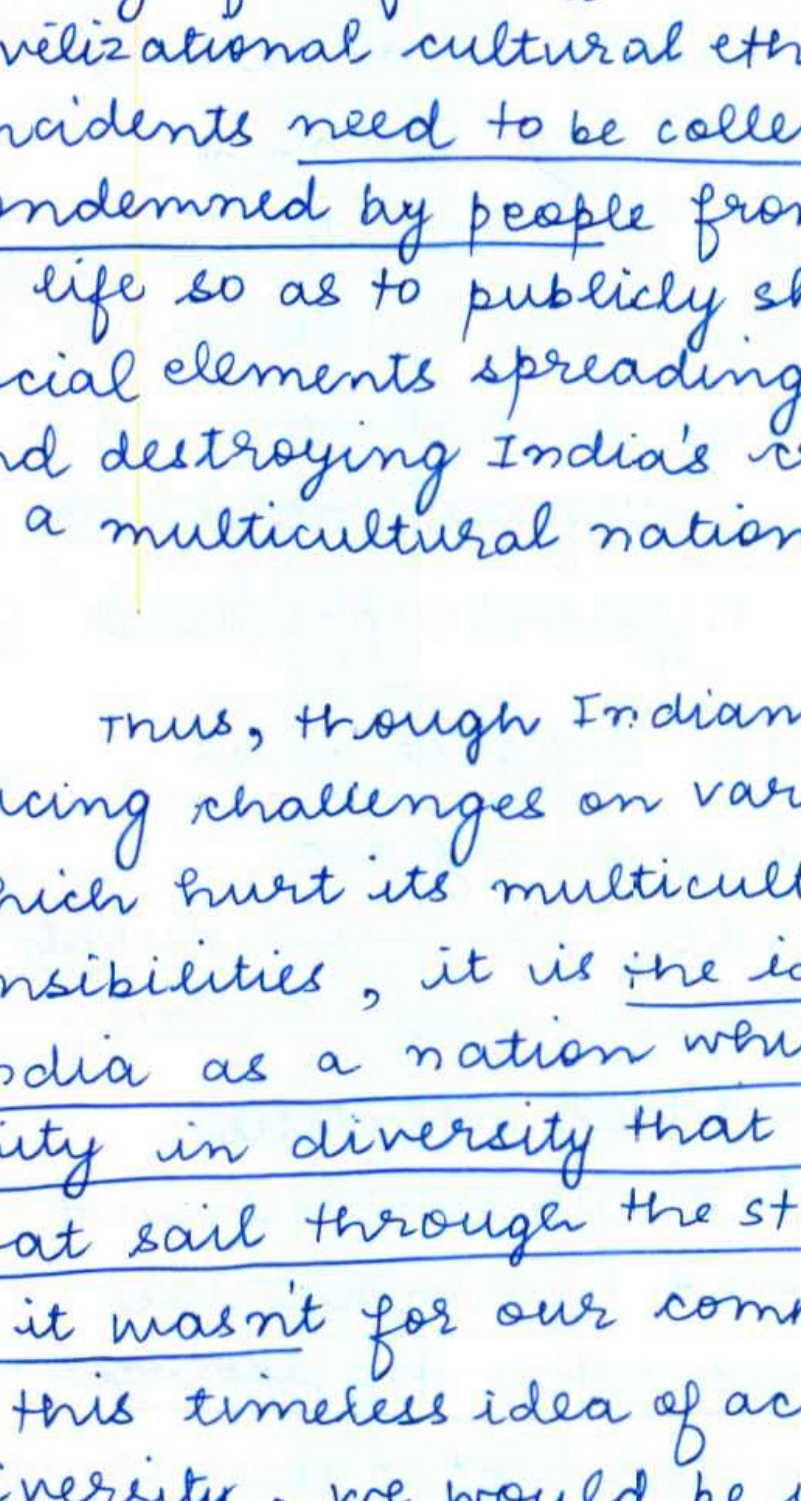 vilizational cultural eth
ncidents need to be colle
ondemned by people from
life so as to publicly sh
cial elements spreading
nd destroying India's c
a multicultural nation
Thus, though Indian
acing challenges on var
hich hurt its multicult
nsibilities, it is the id
ndia as a nation whi
ity in diversity that
at sail through the st
it wasn't for our comm
this timeless idea of ac
iversity, we would be